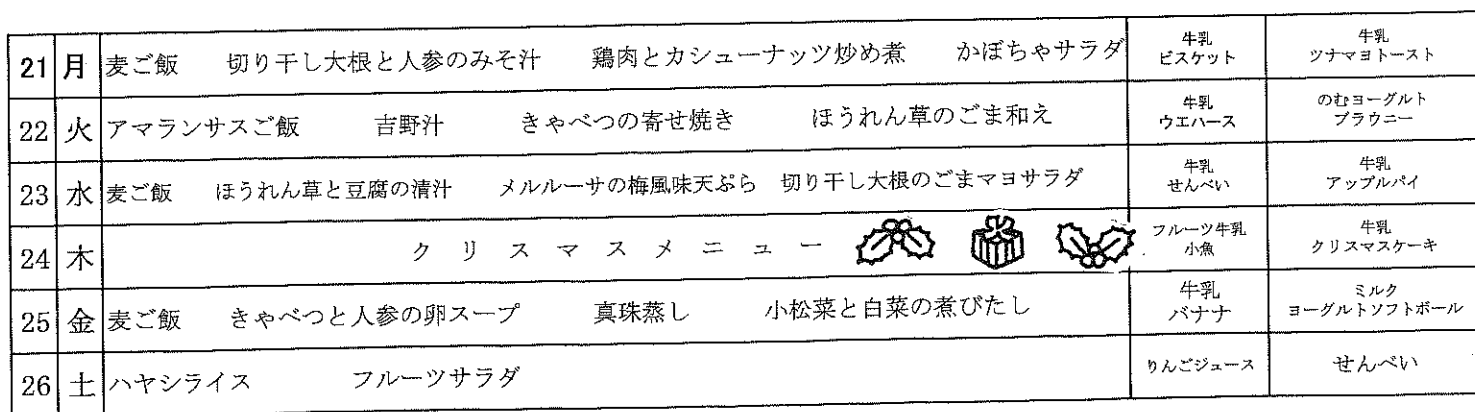 21 月 麦ご飯 切り干し大根と人参のみそ汁 鶏肉とカシューナッツ炒め煮 かぼちゃサラダ 牛乳 ビスケット 牛乳 ツナマヨトースト
22 火 アマランサスご飯 吉野汁 きゃべつの寄せ焼き ほうれん草のごま和え 牛乳 ウエハース のむヨーグルト ブラウニー
23 水 麦ご飯 ほうれん草と豆腐の清汁 メルルーサの梅風味天ぷら 切り干し大根のごまマヨサラダ 牛乳 せんべい 牛乳 アップルパイ
24 木 クリスマスメニュー フルーツ牛乳 小魚 牛乳 クリスマスケーキ
25 金 麦ご飯 きゃべつと人参の卵スープ 真珠蒸し 小松菜と白菜の煮びたし 牛乳 バナナ ミルク ヨーグルトソフトボール
26 土 ハヤシライス フルーツサラダ りんごジュース せんべい